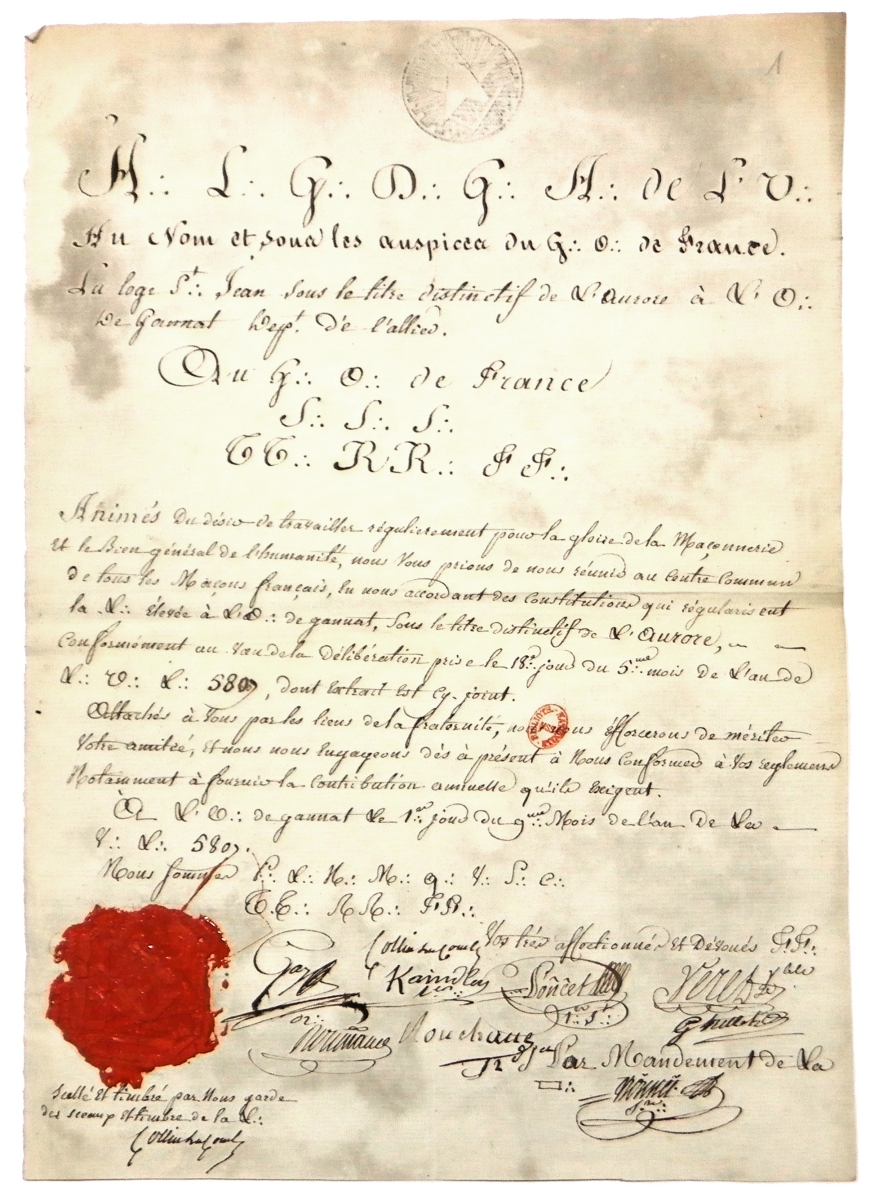 1
A∴ L∴ G∴ D∴ G∴ A∴ de L'U∴
Au Nom et sous les auspices du G∴ O∴ de France.
La loge St∴ Jean sous le titre distinctif de L'Aurore à L'O∴
de Gannat Dept. de l'allier.
Au G∴ O∴ de France
S∴ S∴ S∴
TT∴ RR∴ FF∴
Animés du désir de travailler régulierement pour la gloire de la Maçonnerie
et le Bien général de l'humanité, nous Vous prions de nous réunir au Centre Commun
de tous les Maçons français, en nous accordant des Constitutions qui régularisent
la L∴ élevée à L'O∴ de gannat, sous le titre distinctif de L'Aurore,
Conformément au Vœu de la Délibération prise le 18e jour du 5me mois de L'an de
L∴ V∴ L∴ 5807, dont extrait est cy-joint.
Attachés à Vous par les liens de la fraternité, nous nous éfforcerons de mériter
Votre amitié, et nous nous engageons dès à présent à Nous Conformer à Vos reglemens
Notamment à fournir la Contribution annuelle qu'ils exigent.
À L'O∴ de gannat le 1er jour du 9me Mois de l'an De La
V∴ L∴ 5807.
Nous sommes P∴ L∴ N∴ M∴ q∴ V∴ S∴ C∴
T.C∴ RR∴ FF∴
Vos très affectionnés et Dévoués FF∴
Par Mandement de La
▭∴
Scellé et timbré par Nous garde
des sceaux et timbre de la L∴